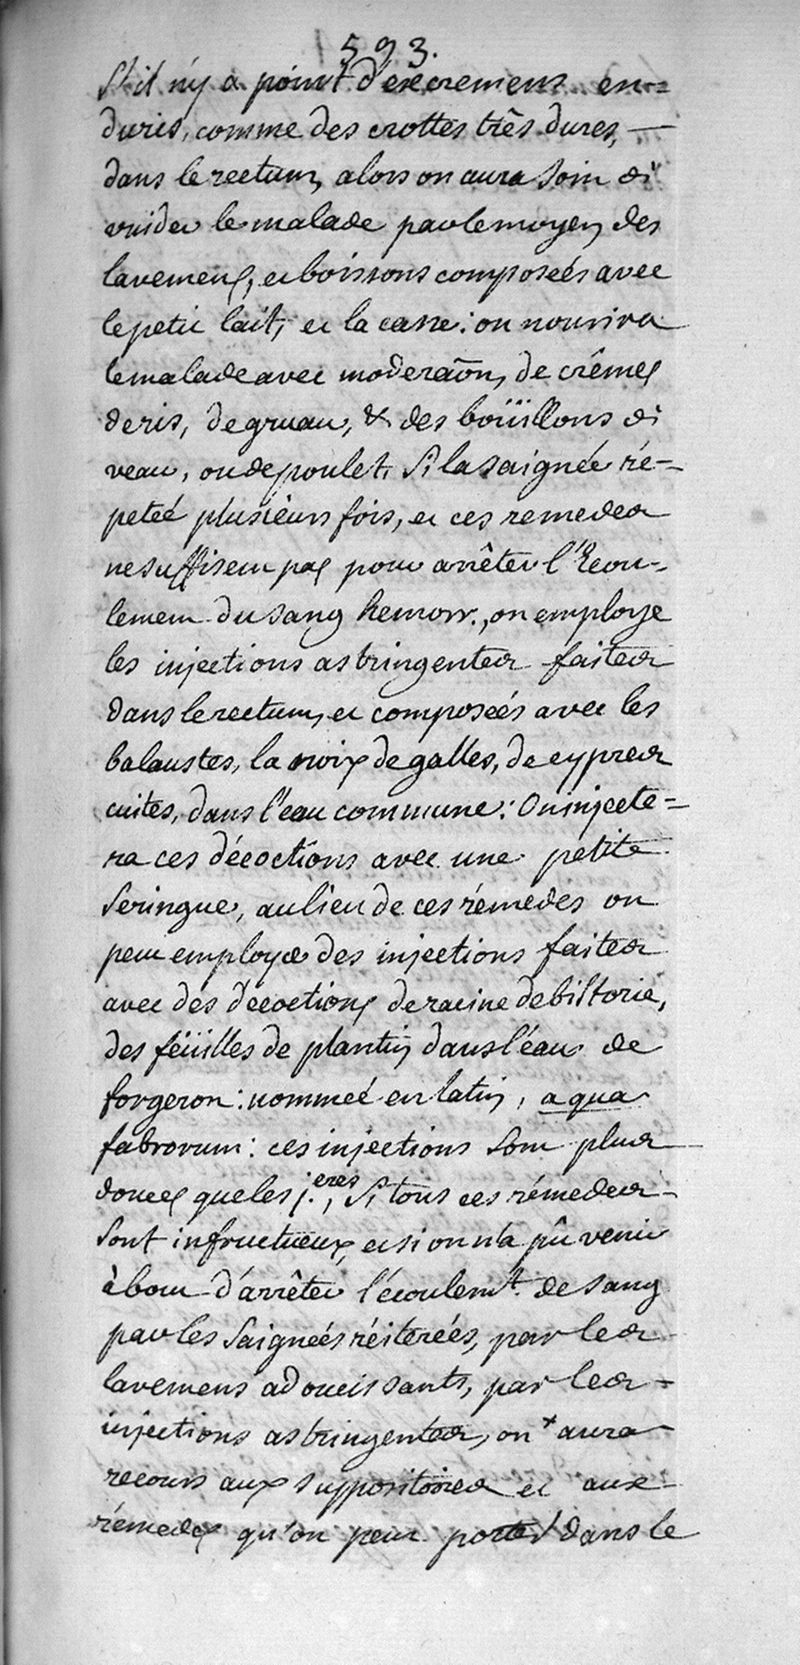 593.
S'il n'y a point d'excremens en-
duris, comme des crottes très dures, —
dans le rectum, alors on aura soin de
vuider le malade par le moyen des
lavemens, et boissons composeés avec
le petit lait, et la casse: on nourira
le malade avec moderaōn, de crêmes
de ris, de gruau, & des boüillons de
veau, ou de poulet. Si la saignée ré-
peteé plusieurs fois, et ces remedes
ne suffisent pas pour arrêter l'Ecou-
lement du sang hemorr., on employe
les injections astringentes faites
dans le rectum, et composeés avec les
balaustes, la noix de galles, de cypres
cuites, dans l'eau commune: On injecte-
ra ces décoctions avec une petite
seringue, au lieu de ces rémedes on
peut employer des injections faites
avec des décoctions de racine de bistorte,
des feüilles de plantin dans l'eau de
forgeron: nommeé en latin, aqua
fabrorum: ces injections sont plus
douces que les j.eres, Si tous ces rémedes
sont infructueux, et si on n'a pû venir
à bout d'arrêter l'écoulemt. de sang
par les saigneés réitereés, par les
lavemens adoucissants, par les
injections astringentes, on aura
recours aux suppositoires et aux
rémedes qu'on peut porter dans le